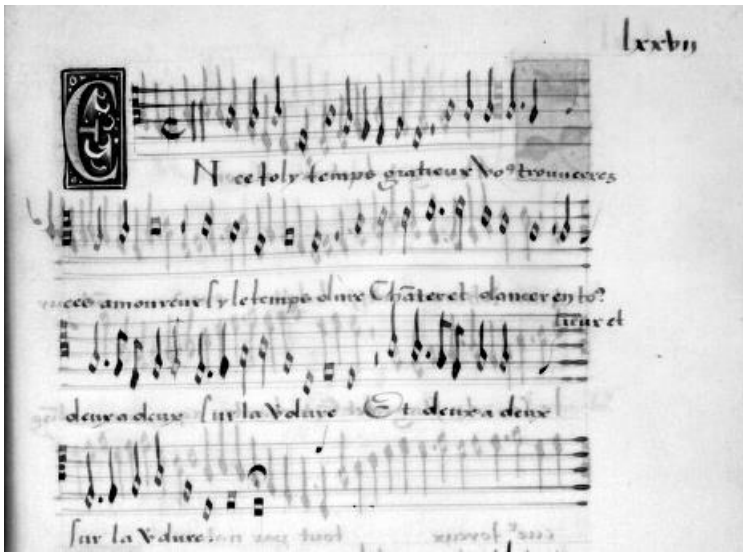 lxxvii
EN ce joly temps gratieux Vo⁹ trouveres
ces amoureux Sy le temps dure Chāter et dancer en to⁹
lieux et
deux a deux Sur la Vdure Et deux a deux
Sur la Vdure.